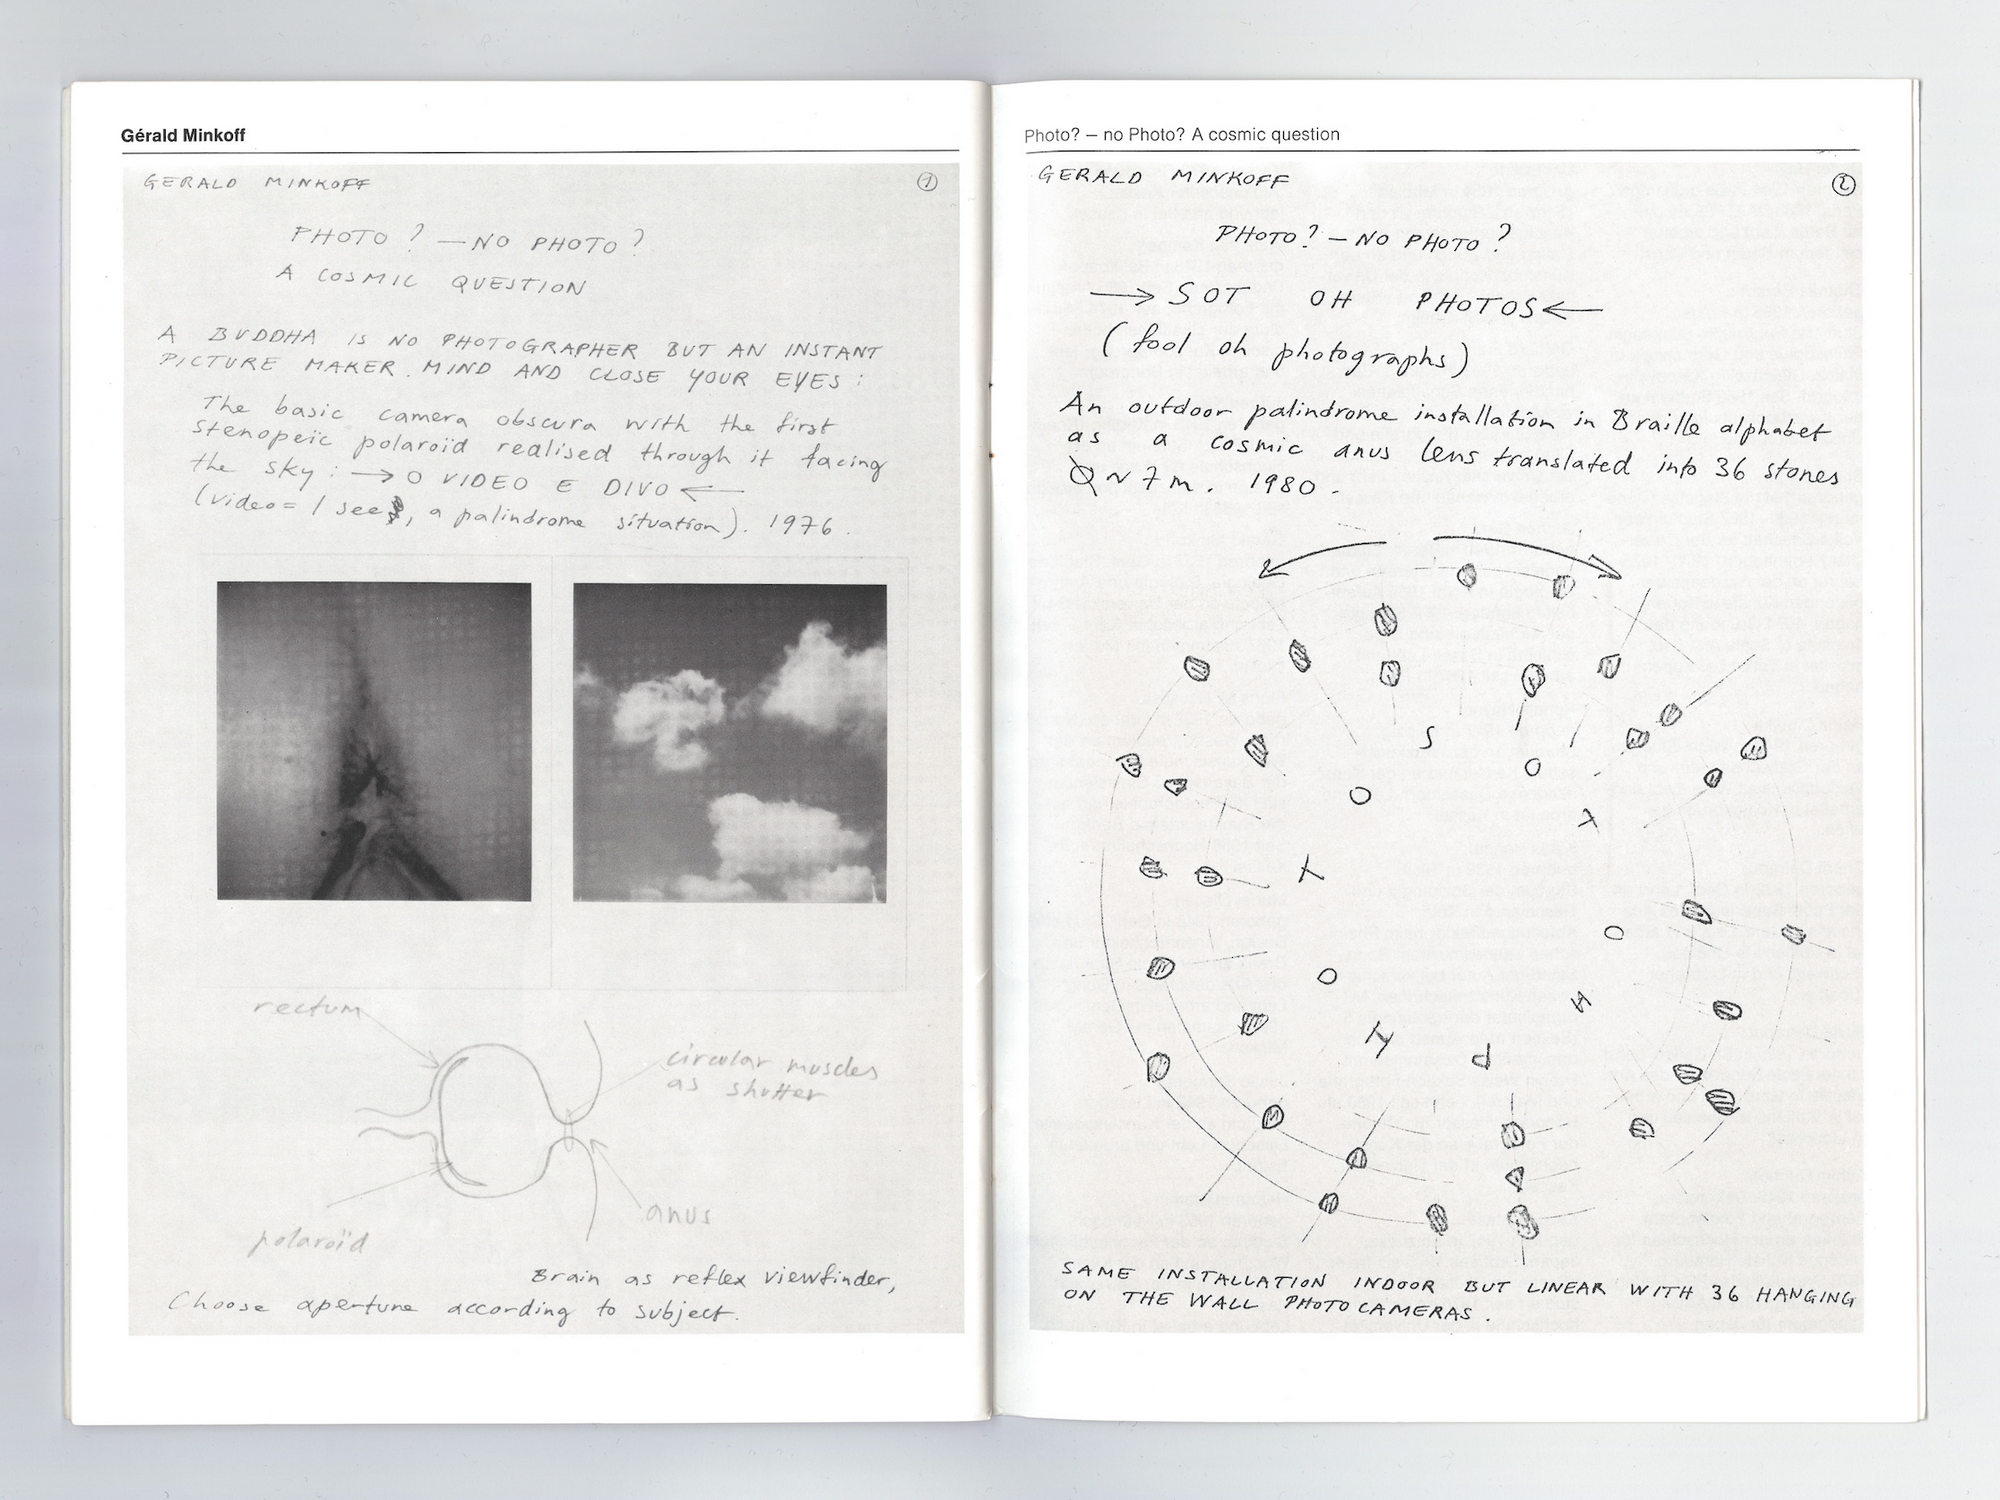 Gérald Minkoff
GERALD MINKOFF
1
PHOTO ? — NO PHOTO ?
A COSMIC QUESTION
A BUDDHA IS NO PHOTOGRAPHER BUT AN INSTANT
PICTURE MAKER. MIND AND CLOSE YOUR EYES :
The basic camera obscura with the first
stenopeïc polaroïd realised through it facing
the sky : → O VIDEO E DIVO ←
(video = I see, a palindrome situation). 1976.
rectum
circular muscles
as shutter
anus
polaroïd
Brain as reflex viewfinder,
Choose aperture according to subject.
Photo? – no Photo? A cosmic question
GERALD MINKOFF
2
PHOTO? — NO PHOTO ?
→ SOT OH PHOTOS ←
(fool oh photographs)
An outdoor palindrome installation in Braille alphabet
as a cosmic anus lens translated into 36 stones
Ø ~ 7 m. 1980.
S
O
T
O
H
P
H
O
T
O
SAME INSTALLATION INDOOR BUT LINEAR WITH 36 HANGING
ON THE WALL PHOTOCAMERAS.